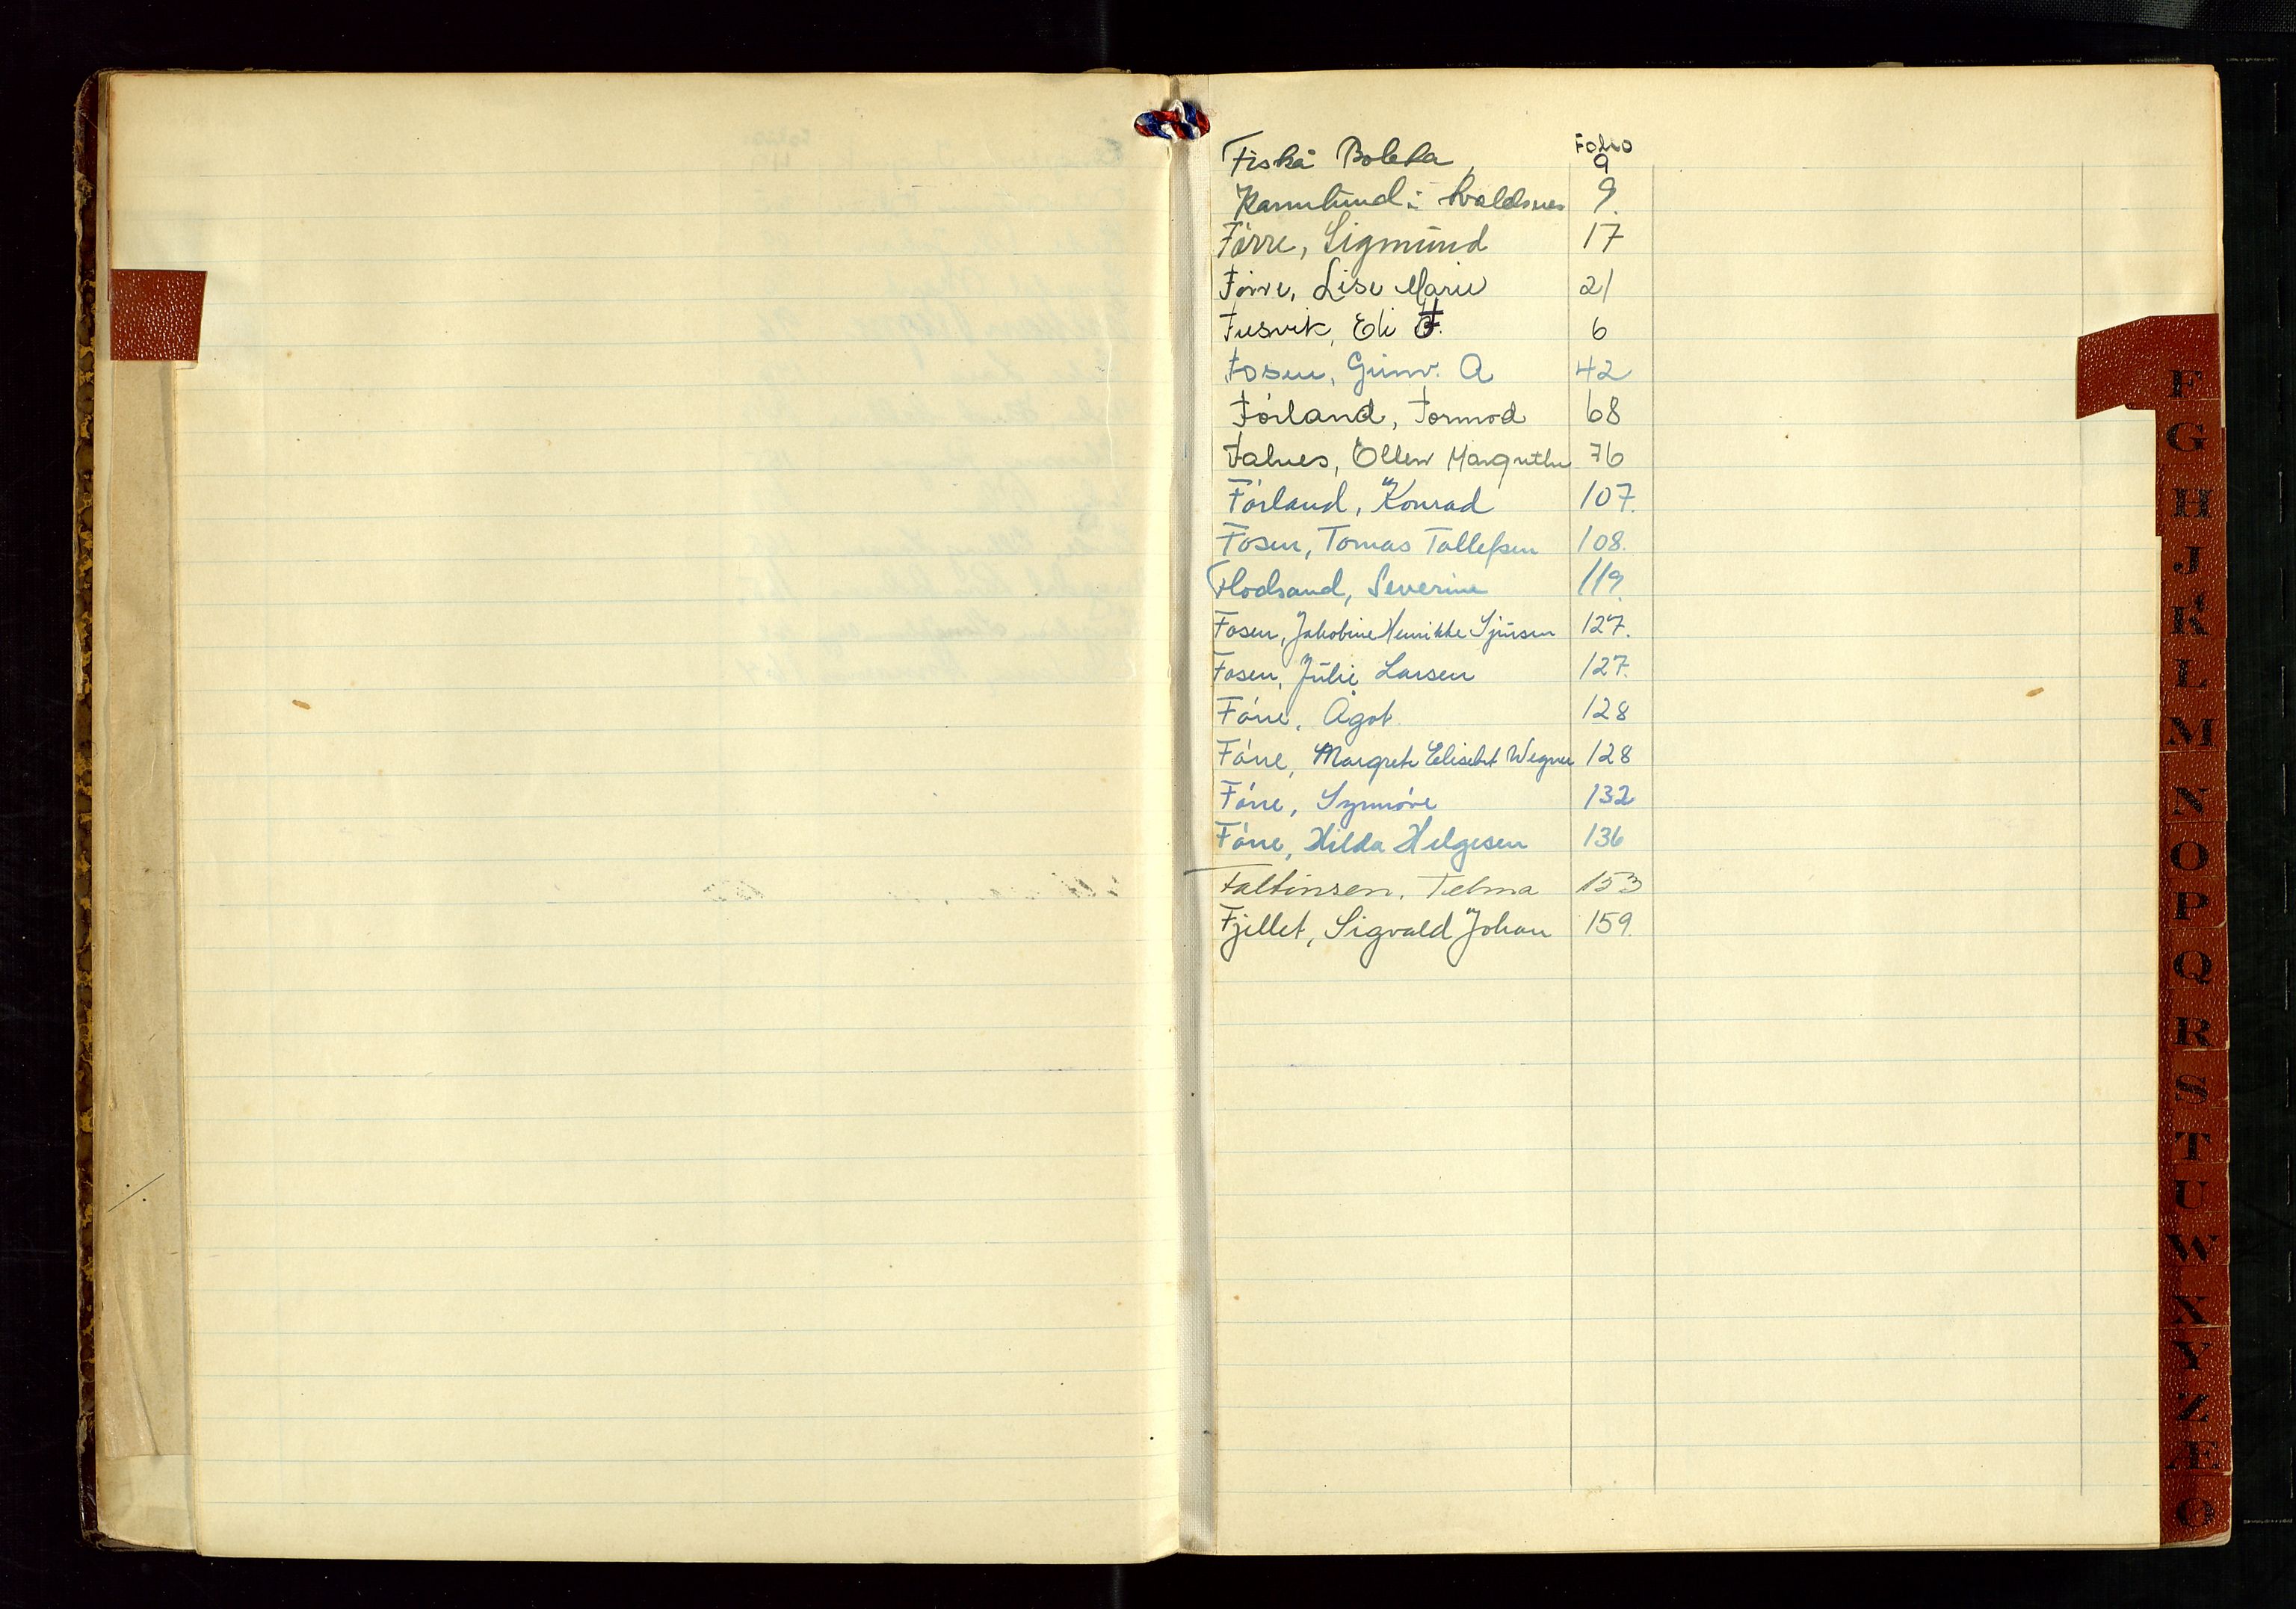 Folio
Fiskå Boletta 9
Karmlund i Avaldsnes 9.
Førre, Sigmund 17
Førre, Lise Marie 21
Fuesvik, Eli F. 6
Fosen, Gunv. A 42
Førland, Tormod 68
Falnes, Ellen Margrethe 76
Førland, Konrad 107.
Fosen, Tomas Tollefsen 108.
Flodsand, Severine 119.
Fosen, Jakobine Henrikke Sjursen 127.
Fosen, Julie Larsen 127.
Førre, Ågot 128
Førre, Margrete Elisebet Wegner 128
Førre, Synnøve 132
Førre, Hilda Helgesen 136
Faltinsen, Telma 153
Fjellet, Sigvald Johan 159.
F
G
H
J
K
L
M
N
O
P
Q
R
S
T
U
W
X
Y
Z
Æ
Ø